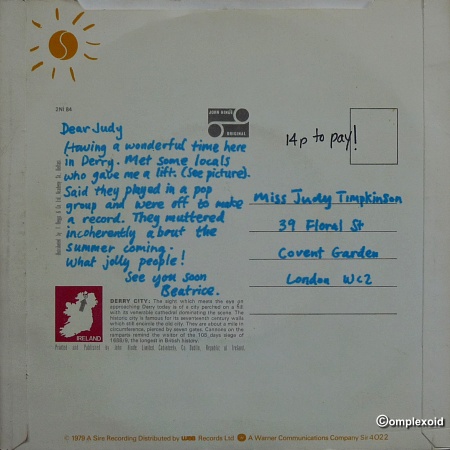 2NI 84
JOHN HINDE
ORIGINAL
Dear Judy
Having a wonderful time here
in Derry. Met some locals
who gave me a lift. (See picture).
Said they played in a pop
group and were off to make
a record. They muttered
incoherently about the
summer coming.
What jolly people!
See you soon
Beatrice.
14p to pay!
Miss Judy Timpkinson
39 Floral St
Covent Garden
London WC2
IRELAND
DERRY CITY: The sight which meets the eye on
approaching Derry today is of a city perched on a hill
with its venerable cathedral dominating the scene. The
historic city is famous for its seventeenth century walls
which still encircle the old city. They are about a mile in
circumference, pierced by seven gates. Cannons on the
ramparts remind the visitor of the 105 days siege of
1688/9, the longest in British history.
Printed and Published by John Hinde Limited, Cabinteely, Co. Dublin, Republic of Ireland.
© 1979 A Sire Recording Distributed by wea Records Ltd. A Warner Communications Company Sir 4022
©omplexoid